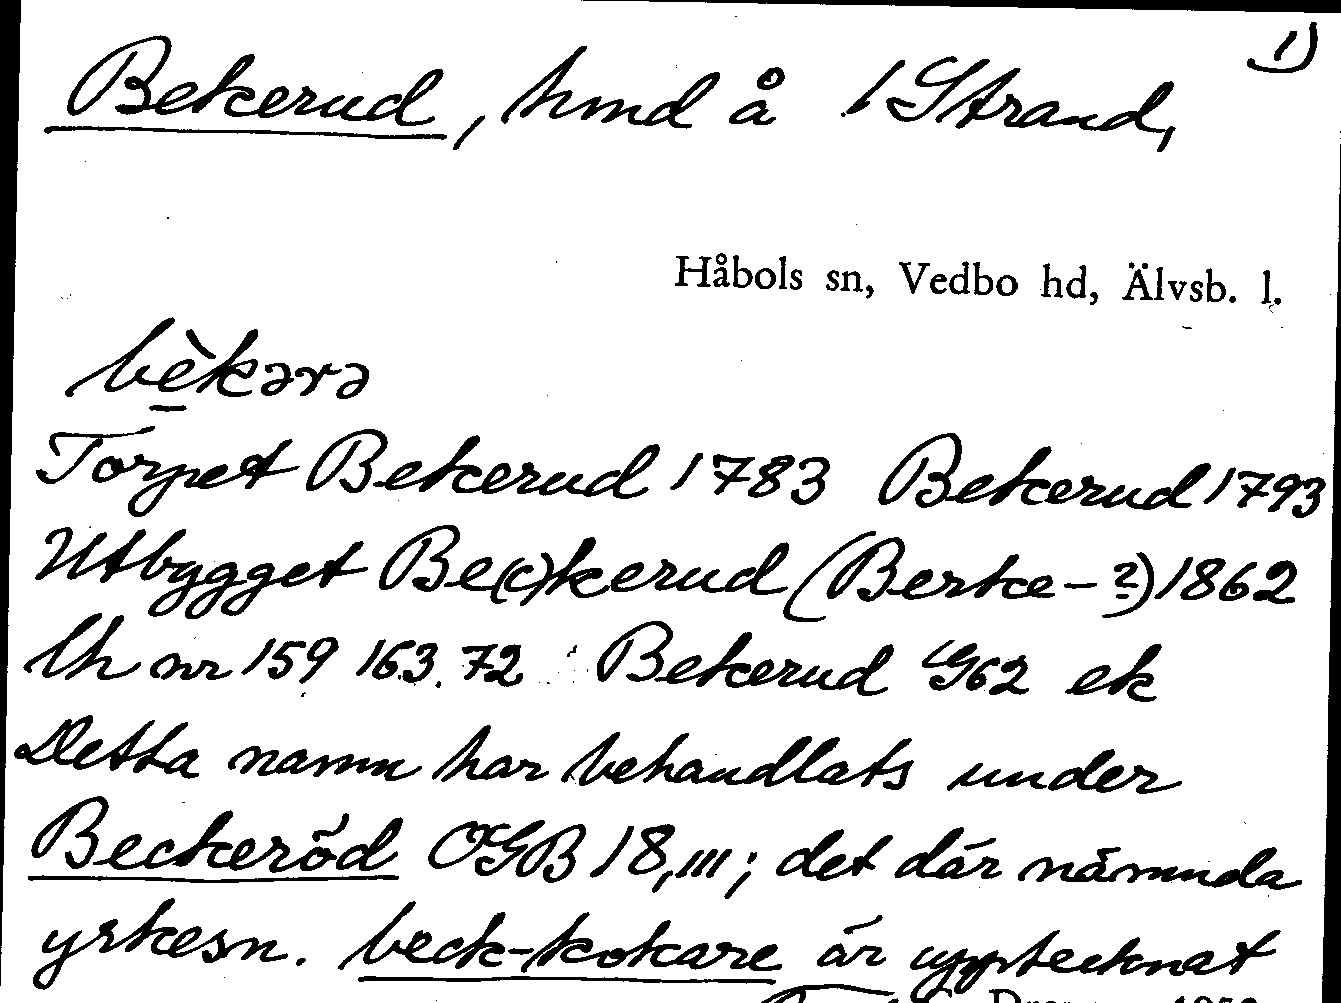 1)
Bekerud, hmd å 1 Strand,
Håbols sn, Vedbo hd, Älvsb. l.
bèkərə
Torpet Bekerud 1783 Bekerud 1793
Utbygget Be(c)kerud (Berke-?) 1862
lh nr 159 163. 72 Bekerud G62 ek
Detta namn har behandlats under
Beckeröd OGB 18,III; det där nämnda
yrkesn. beck-kokare är upptecknat